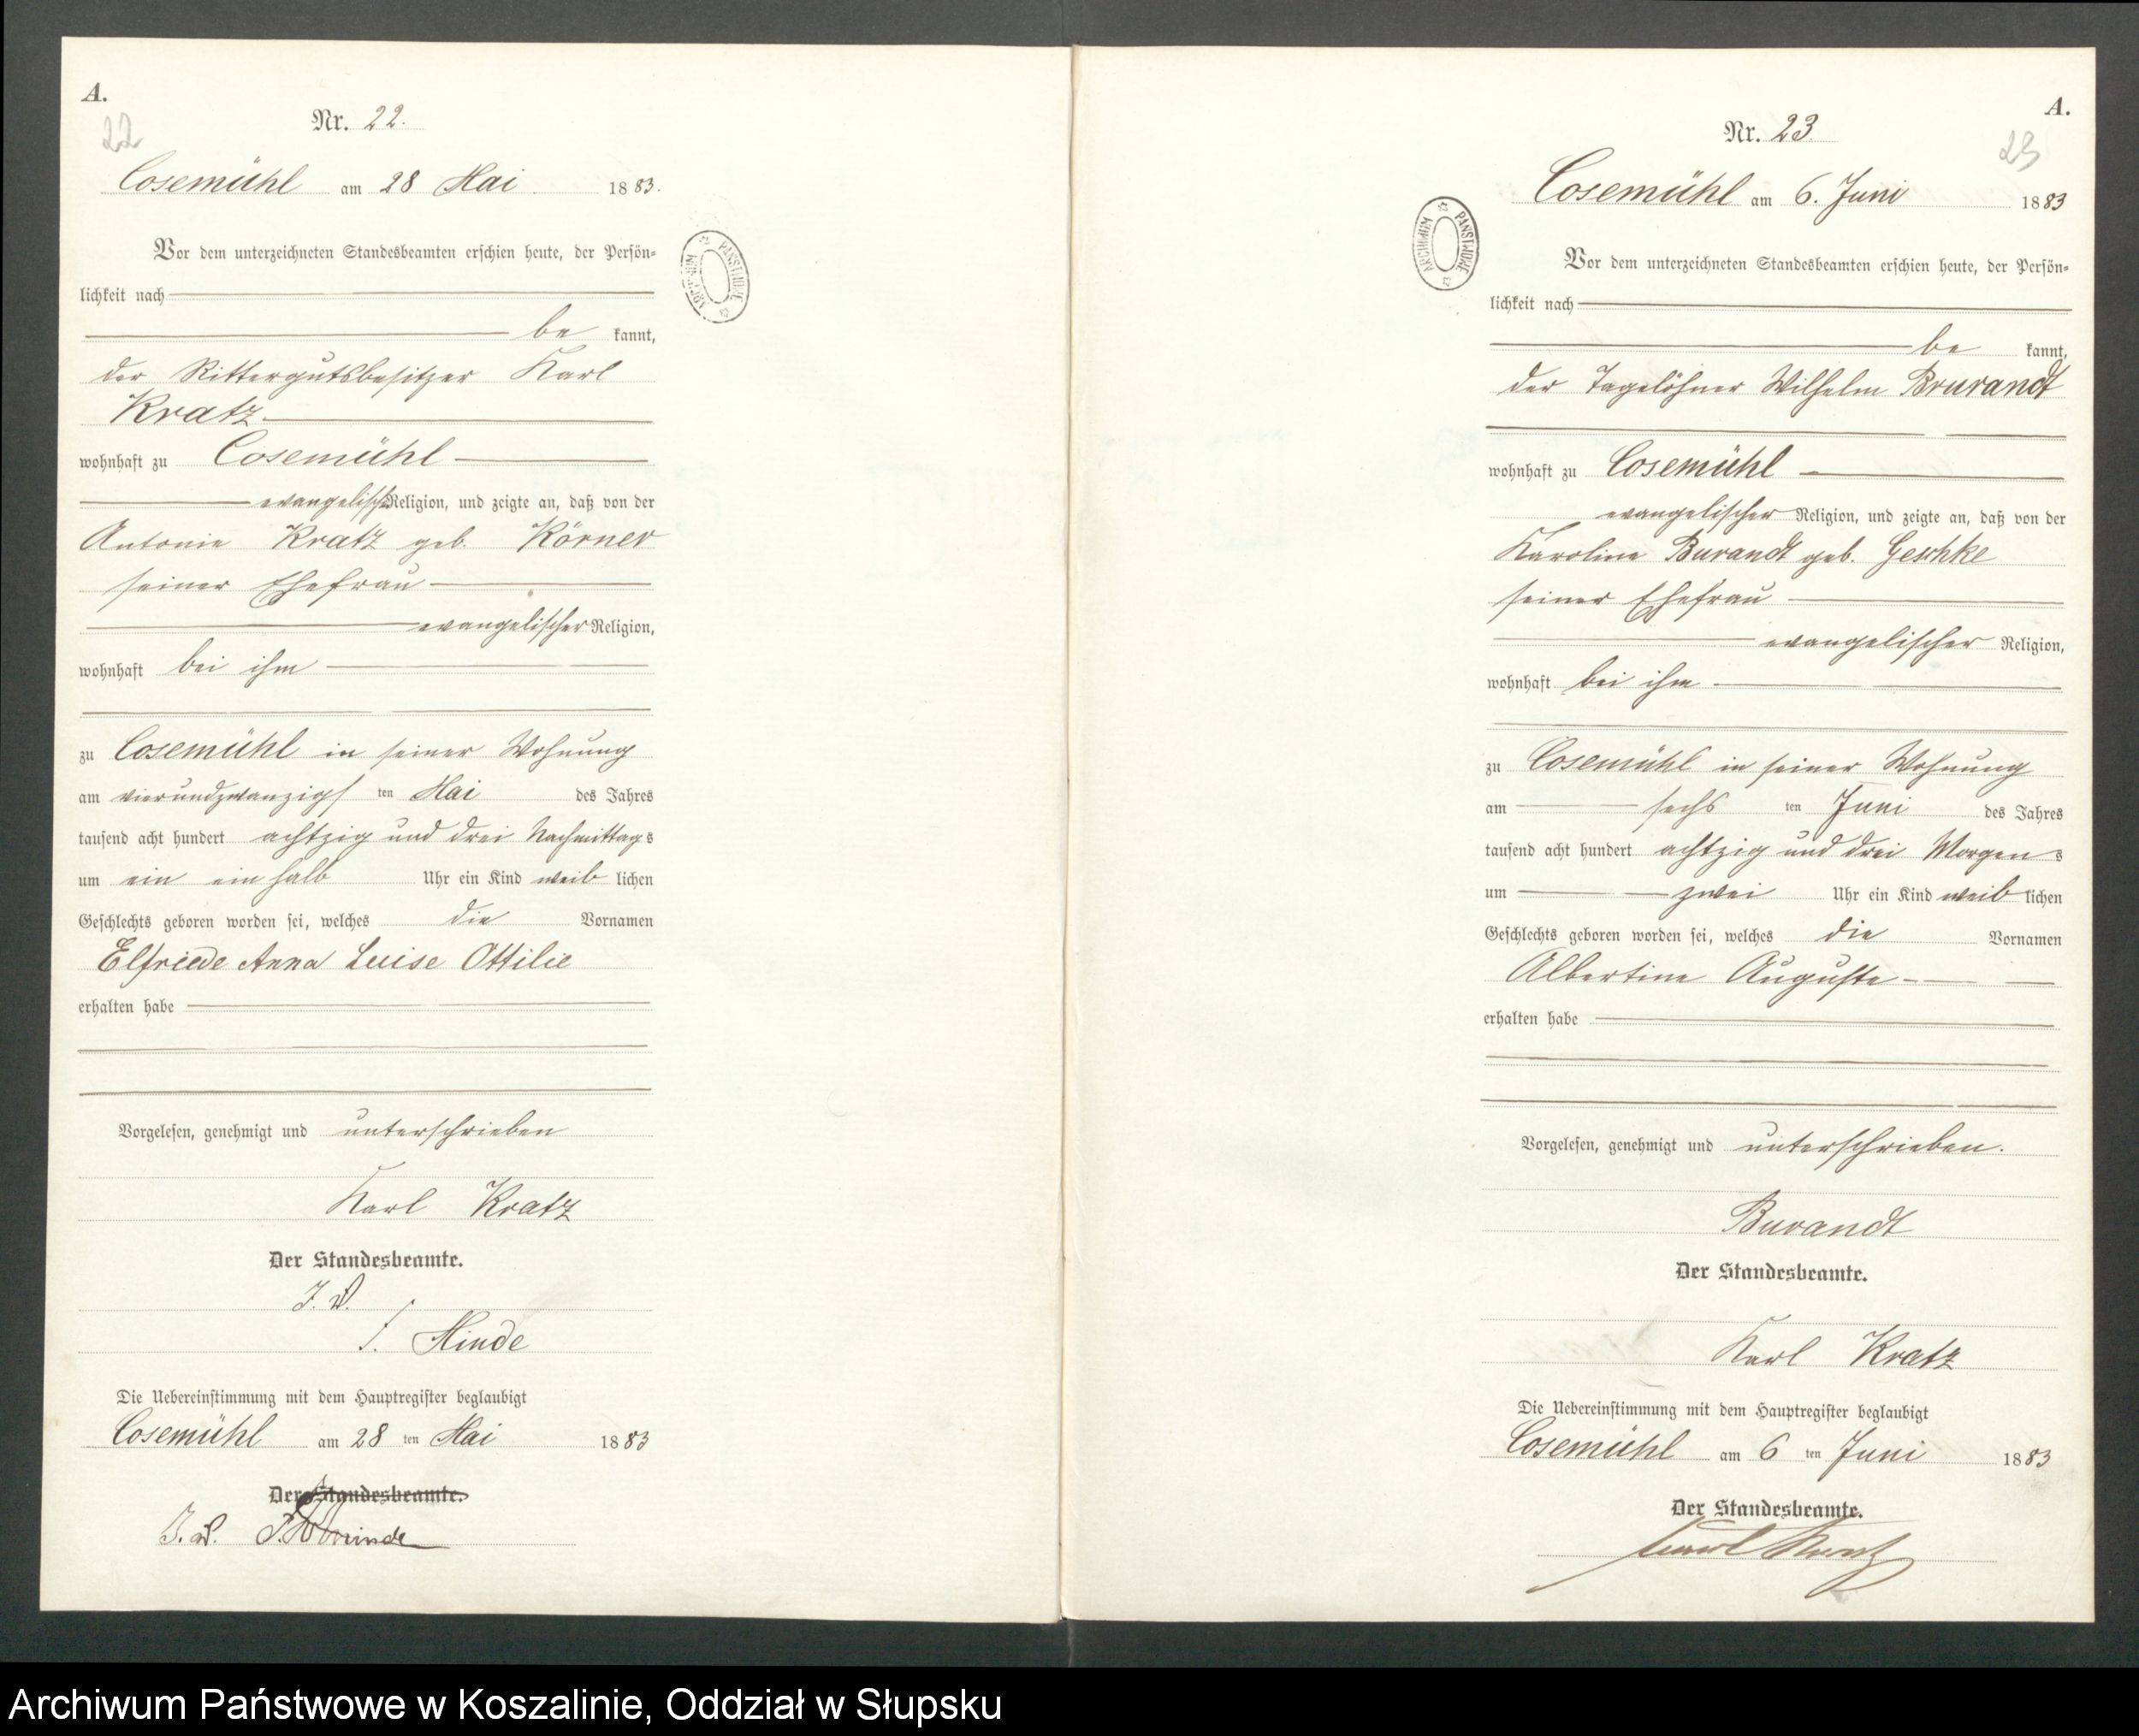 A.
22
Nr. 22.
Cosemühl am 28 Mai 1883.
Vor dem unterzeichneten Standesbeamten erschien heute, der Persön-
lichkeit nach
be kannt,
der Rittergutsbesitzer Karl
Kratz
wohnhaft zu Cosemühl
evangelisch Religion, und zeigte an, daß von der
Antonie Kratz geb. Körner
seiner Ehefrau
evangelischer Religion,
wohnhaft bei ihm
zu Cosemühl in seiner Wohnung
am vierundzwanzigs ten Mai des Jahres
tausend acht hundert achtzig und drei Nachmittags
um ein ein halb Uhr ein Kind weib lichen
Geschlechts geboren worden sei, welches die Vornamen
Elfriede Anna Luise Ottilie
erhalten habe
Vorgelesen, genehmigt und unterschrieben
Karl Kratz
Der Standesbeamte.
J. V.
Die Uebereinstimmung mit dem Hauptregister beglaubigt
Cosemühl am 28 ten Mai 1883
Der Standesbeamte.
J. V.
ARCHIWUM PAŃSTWOWE
A.
23
Nr. 23.
Cosemühl am 6. Juni 1883
Vor dem unterzeichneten Standesbeamten erschien heute, der Persön-
lichkeit nach
be kannt,
der Tagelöhner Wilhelm Brurandt
wohnhaft zu Cosemühl
evangelischer Religion, und zeigte an, daß von der
Karoline Burandt geb. Geschke
seiner Ehefrau
evangelischer Religion,
wohnhaft bei ihm
zu Cosemühl in seiner Wohnung
am sechs ten Juni des Jahres
tausend acht hundert achtzig und drei Morgens
um zwei Uhr ein Kind weib lichen
Geschlechts geboren worden sei, welches die Vornamen
Albertine Auguste
erhalten habe
Vorgelesen, genehmigt und unterschrieben.
Burandt
Der Standesbeamte.
Karl Kratz
Die Uebereinstimmung mit dem Hauptregister beglaubigt
Cosemühl am 6 ten Juni 1883
Der Standesbeamte.
Karl Kratz
ARCHIWUM PAŃSTWOWE
Archiwum Państwowe w Koszalinie, Oddział w Słupsku